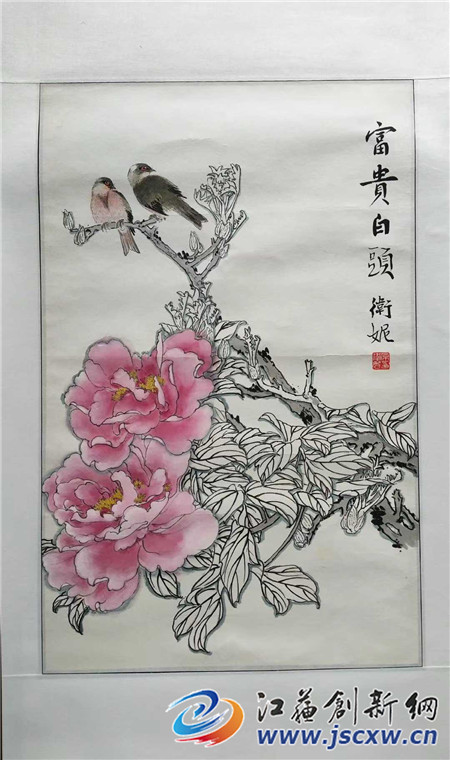 富貴白頭
衛妮
江蘇創新網
www.jscxw.cn